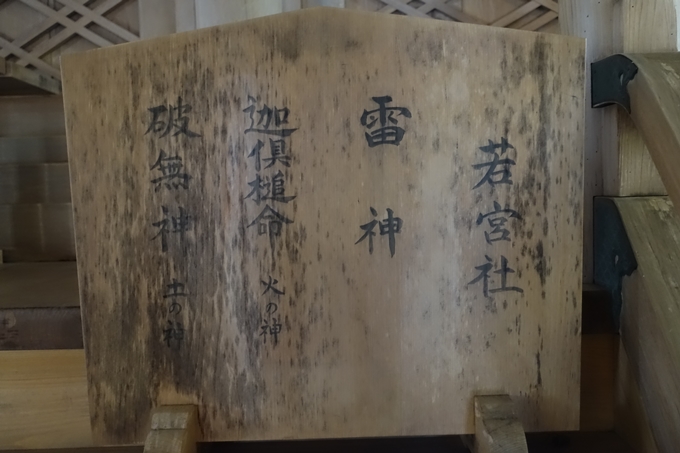 若宮社
雷神
迦倶槌命 火の神
破無神 土の神